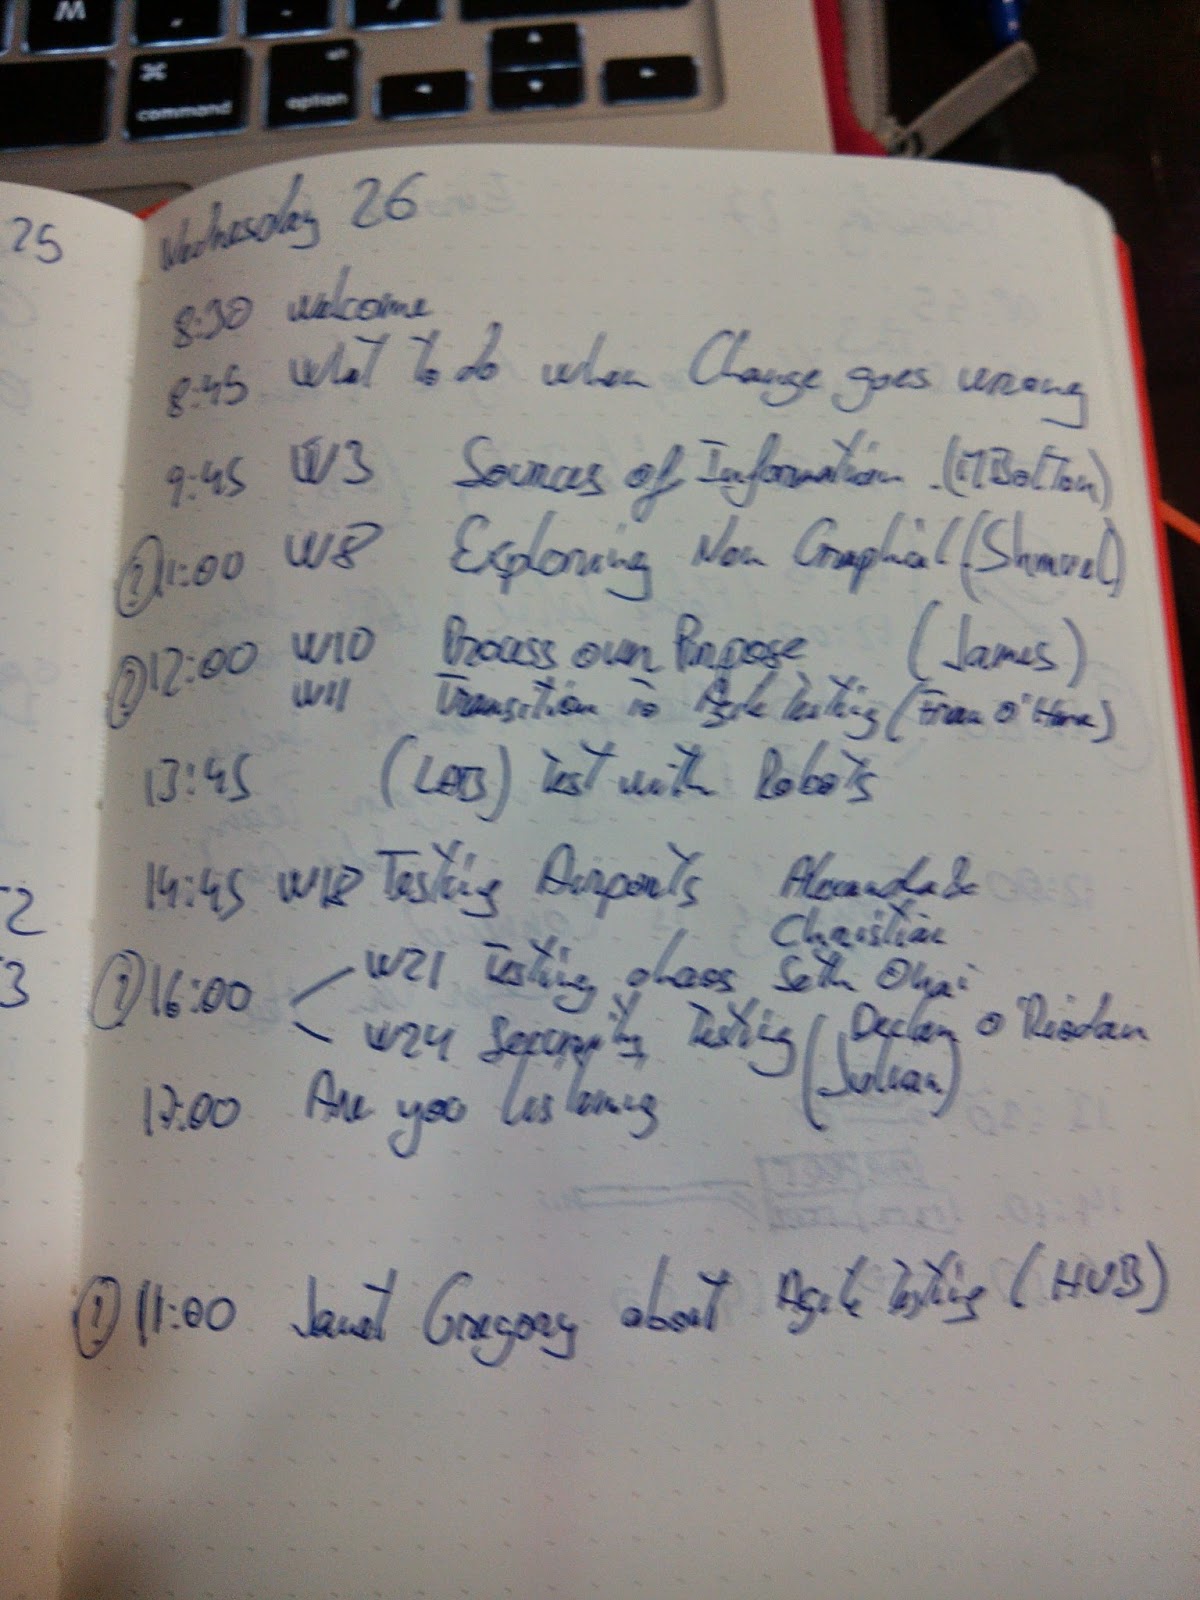 M
,
.
/
⌘
command
alt
option
25
Wednesday 26
8:30 Welcome
8:45 What to do when Change goes wrong
9:45 W3 Sources of Information (MBolton)
? 11:00 W8 Exploring Non Graphical (Shmuel)
? 12:00 W10 Process over Purpose (James)
W11 Transition to Agile Testing (Fran O'Hara)
13:45 (LAB) Test with Robots
14:45 W18 Testing Airports Alexandra &
Christian
? 16:00 W21 Testing chaos Seth
W24 Security Testing (Declan O'Riordan
Julian)
17:00 Are you listening
? 11:00 Janet Gregory about Agile Testing (HUB)
2
3